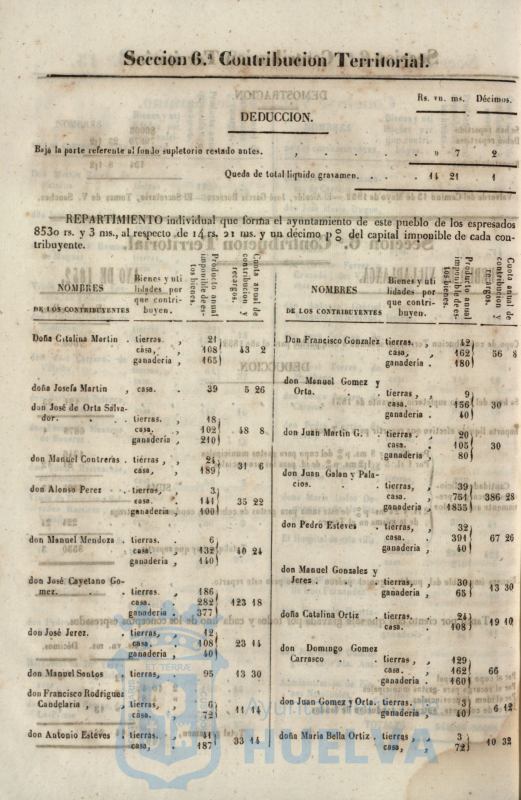 Seccion 6.ª Contribucion Territorial.
Rs. vn. ms. Décimos.
DEDUCCION.
Baja la parte referente al fondo supletorio restado antes. , . . » 7 2
Queda de total liquido gravamen. . . 14 21 1
REPARTIMIENTO individual que forma el ayuntamiento de este pueblo de los espresados
8530 rs. y 3 ms., al respecto de 14 rs. 21 ms. y un décimo p 0/0 del capital imponible de cada con-
tribuyente.
NOMBRES
DE LOS CONTRIBUYENTES
Bienes y uti
lidades por
que contri-
buyen.
Producto anual
imponible de es-
tos bienes.
Cuota anual de
contribucion y
recargos.
Doña Catalina Martin . tierras. , 21
casa, , 108 43 2
ganadería , 165
doña Josefa Martin , casa. 39 5 26
don José de Orta Salva-
dor. . . tierras. , 18
casa. , 102 48 8
ganadería , 210
don Manuel Contreras . tierras , , 24
casa, , 189 31 6
don Alonso Perez . . tierras, 3
casa. , 141 35 22
ganadería , 100
don Manuel Mendoza . tierras. 6
casa. 132 40 24
ganadería , 140
don José Cayetano Go-
mez. . . tierras. 186
casa. 282 123 18
ganadería . 377
don José Jerez. . tierras, 12
casa, , 108 23 14
ganadería , 40
don Manuel Santos . tierras, 95 13 30
don Francisco Rodriguez
Candelaria , , tierras, 6
casa. 72 11 14
don Antonio Esteves . tierras. . 41
casa, , 187 33 14
NOMBRES
DE LOS CONTRIBUYENTES
Bienes y uti
lidades por
que contri-
buyen.
Producto anual
imponible de es-
tos bienes.
Cuota anual de
contribucion y
recargos.
Don Francisco Gonzalez tierras. , 42
casa, , 162 56 8
ganadería . 180
don Manuel Gomez y
Orta. . . tierras , 9
casa. . 156 30
ganadería . 40
don Juan Martin G. . tierras. , 20
casa. . 105 30
ganadería , 80
don Juan Galan y Pala-
cios. . . tierras, , 39
casa. , 761 386 28
ganadería , 1855
don Pedro Esteves . tierras, , 32
casa. 391 67 26
ganadería , 40
don Manuel Gonzalez y
Jerez . . . tierras, , 30
ganadería , 65 13 30
doña Catalina Ortiz tierras. , 24
casa. , 108 19 10
don Domingo Gomez
Carrasco . . tierras , , 129
casa. , 162 66
ganadería , 160
don Juan Gomez y Orta. tierras. , 3
ganadería , 40 6 12
doña Maria Bella Ortiz . tierras , 3
casa, , 72 10 32
Ayuntamiento de
HUELVA